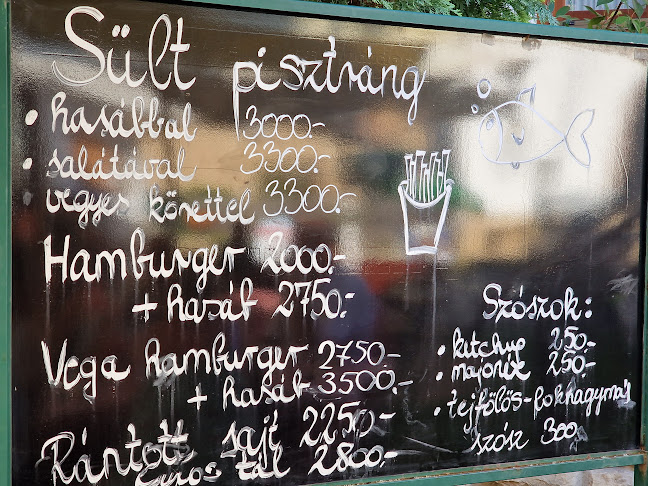 Sült pisztráng
• hasábbal 3000.-
• salátával 3300.-
vegyes körettel 3300.-
Hamburger 2000.-
+ hasáb 2750.-
Vega hamburger 2750.-
+ hasáb 3500.-
Rántott sajt 2250.-
tál 2800.-
Szószok:
• ketchup 250.-
• majonéz 250.-
• tejfölös-fokhagymás
szósz 300.